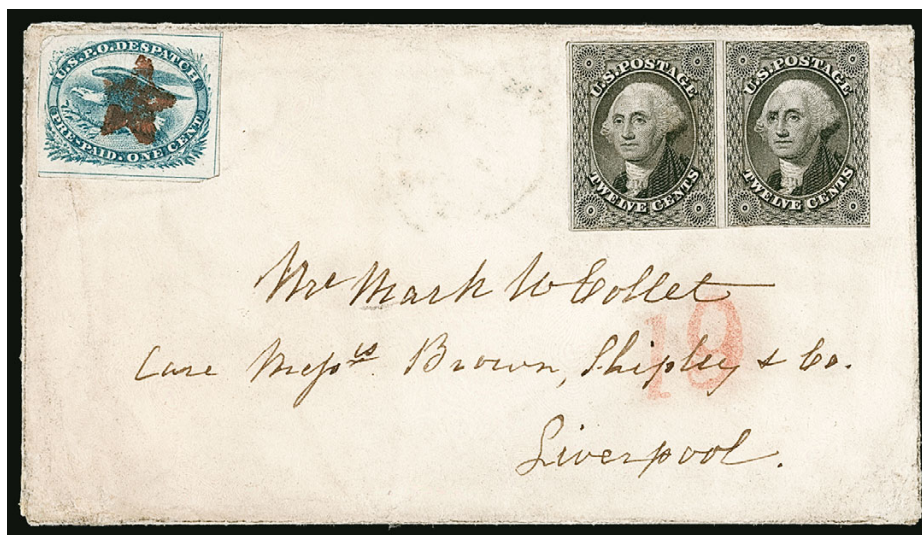 U.S.P.O. DESPATCH
PRE-PAID. ONE CENT
U.S. POSTAGE
TWELVE CENTS
U.S. POSTAGE
TWELVE CENTS
Mr Mark W Collet
Care Messrs. Brown, Shipley & Co.
19
Liverpool.